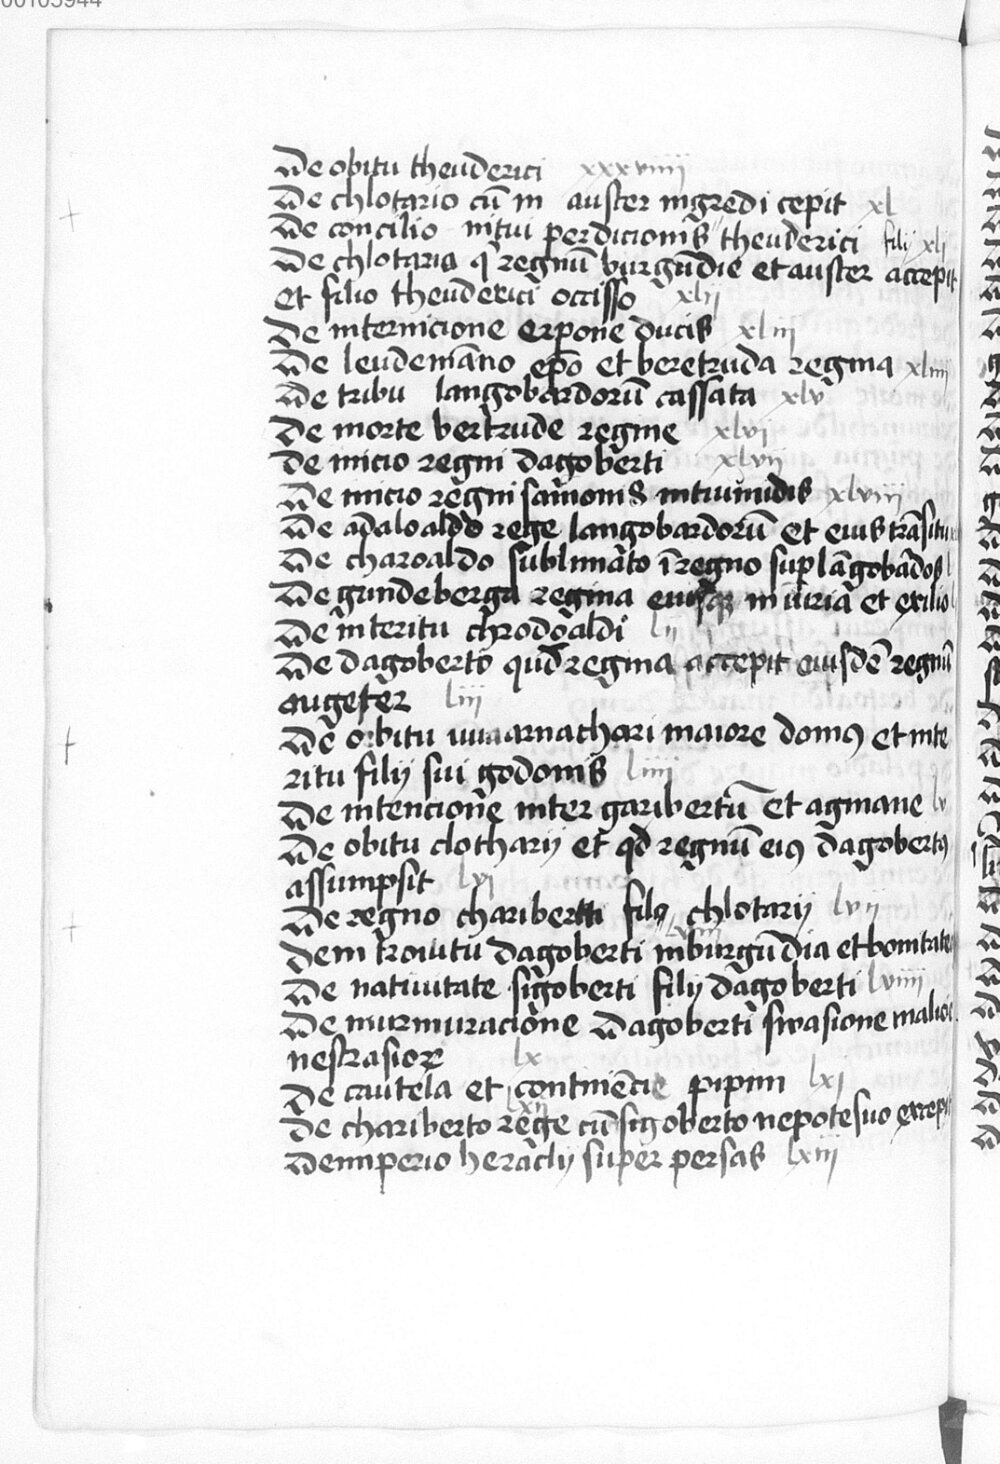 De obitu theuderici xxxviiii
De chlotario cū in auster ingredi cepit xl
De concilio initui perdicionis theuderici filij xlj
De chlotario q regnū burgūdie et auster accepit
et filio theuderici occisso xlij
De internicione erpone ducis xliij
De leudemāno epō et beretruda regina xliiij
De tribu langobardorū cassata xlv
De morte bertrude regine xlvj
de inicio regni dagoberti xlvij
De inicio regni samonis inti xlviij
De adaloaldo rege langobardorū et eius trāsitu
De charoaldo sublimato ī regno sup lāgobados l
De gundeberga regina in iuriā et exilio
De interitu chrodoaldi lij
De dagoberto qud regina accepit eiusdē regnū
augester liij
De obitu uuaarnachari maiore domꝰ et inte
ritu filij sui godonis liiij
De intencione inter garibertū et agmane lv
De obitu clotharij et qd regnū eiꝰ dagobertꝰ
assumpsit lvj
De regno chariberti chlotarij lvij
lviij
dem troiutū dagoberti inburgūdia et bonitate
De natiuitate sigoberti filij dagoberti lviiij
De murmuracione dagoberti swasione
nestrasiore lx
De cautela et continēcie pipini lxj
lxij
De chariberto rege cū sigoberto nepotesuo excepi
Deimperio heraclij super persas lxiij